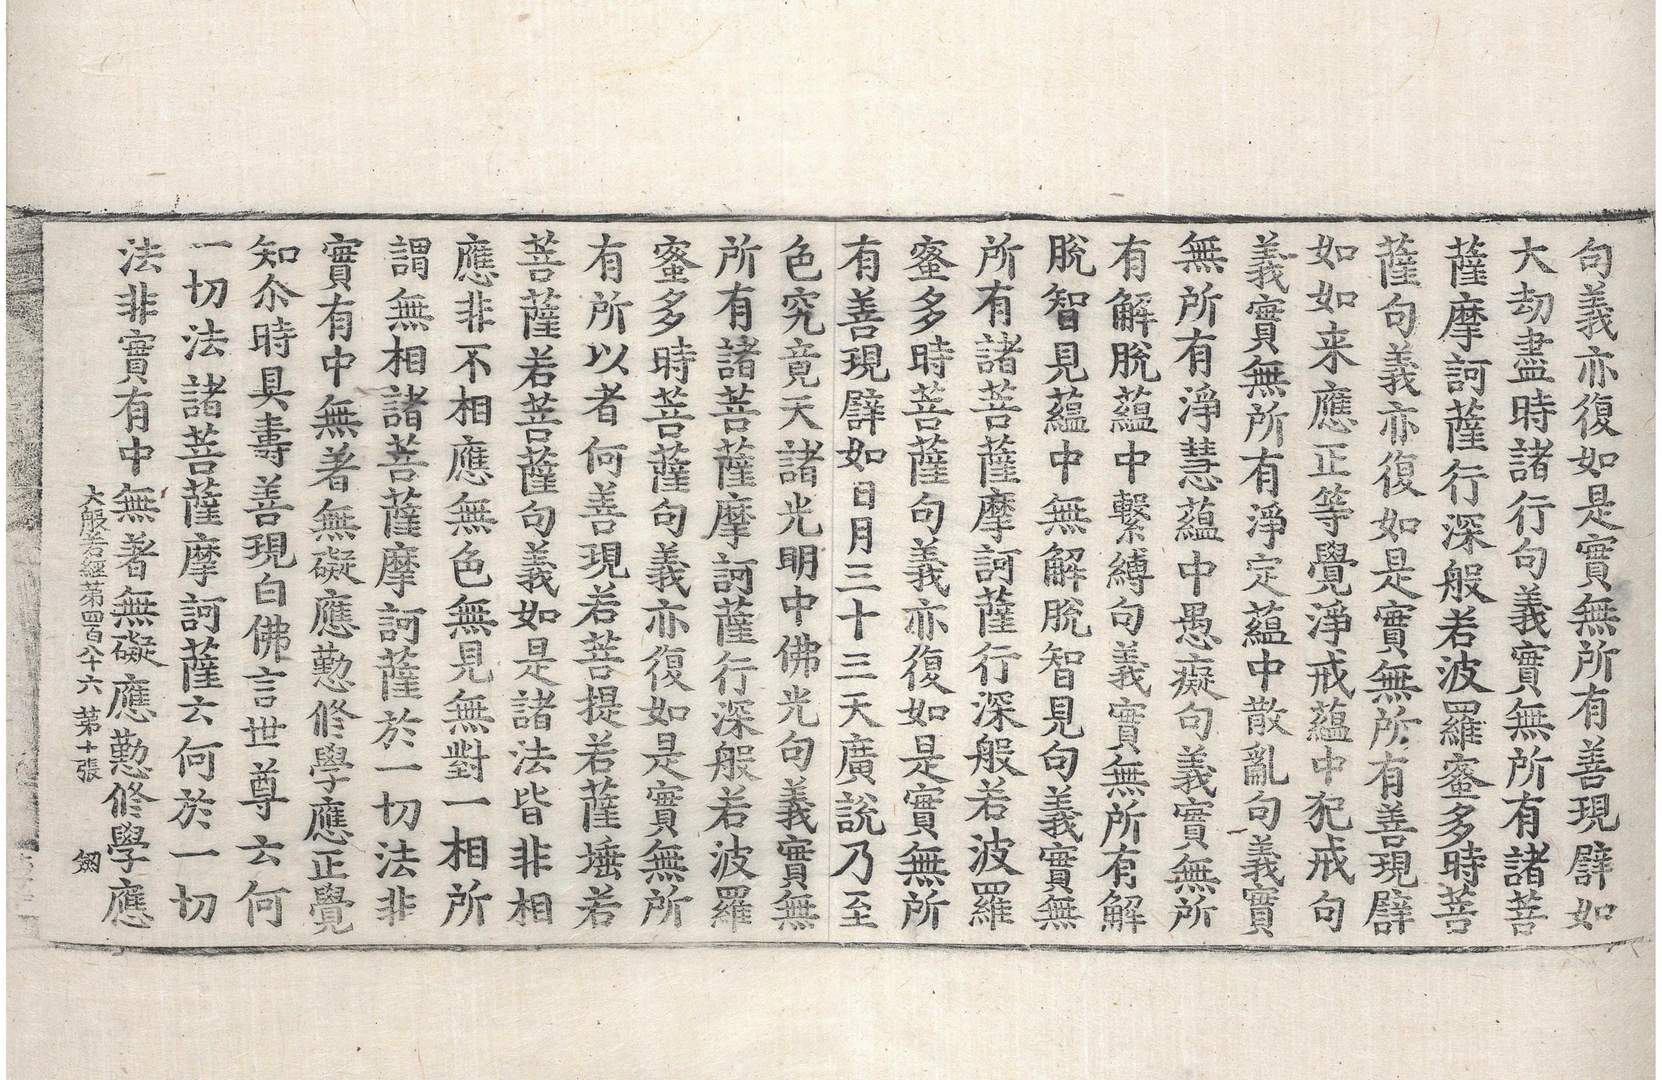 句義亦復如是實無所有善現譬如
大劫盡時諸行句義實無所有諸菩
薩摩訶薩行深般若波羅蜜多時菩
薩句義亦復如是實無所有善現譬
如如来應正等覺淨戒蘊中犯戒句
義實無所有淨定蘊中散亂句義實
無所有淨慧蘊中愚癡句義實無所
有解脫蘊中繫縛句義實無所有解
脫智見蘊中無解脫智見句義實無
所有諸菩薩摩訶薩行深般若波羅
蜜多時菩薩句義亦復如是實無所
有善現譬如日月三十三天廣說乃至
色究竟天諸光明中佛光句義實無
所有諸菩薩摩訶薩行深般若波羅
蜜多時菩薩句義亦復如是實無所
有所以者何善現若菩提若薩埵若
菩薩若菩薩句義如是諸法皆非相
應非不相應無色無見無對一相所
謂無相諸菩薩摩訶薩於一切法非
實有中無著無礙應勤修學應正覺
知尒時具壽善現白佛言世尊云何
一切法諸菩薩摩訶薩云何於一切
法非實有中無著無礙應勤修學應
大般若經第四百八十六 第十張 劒